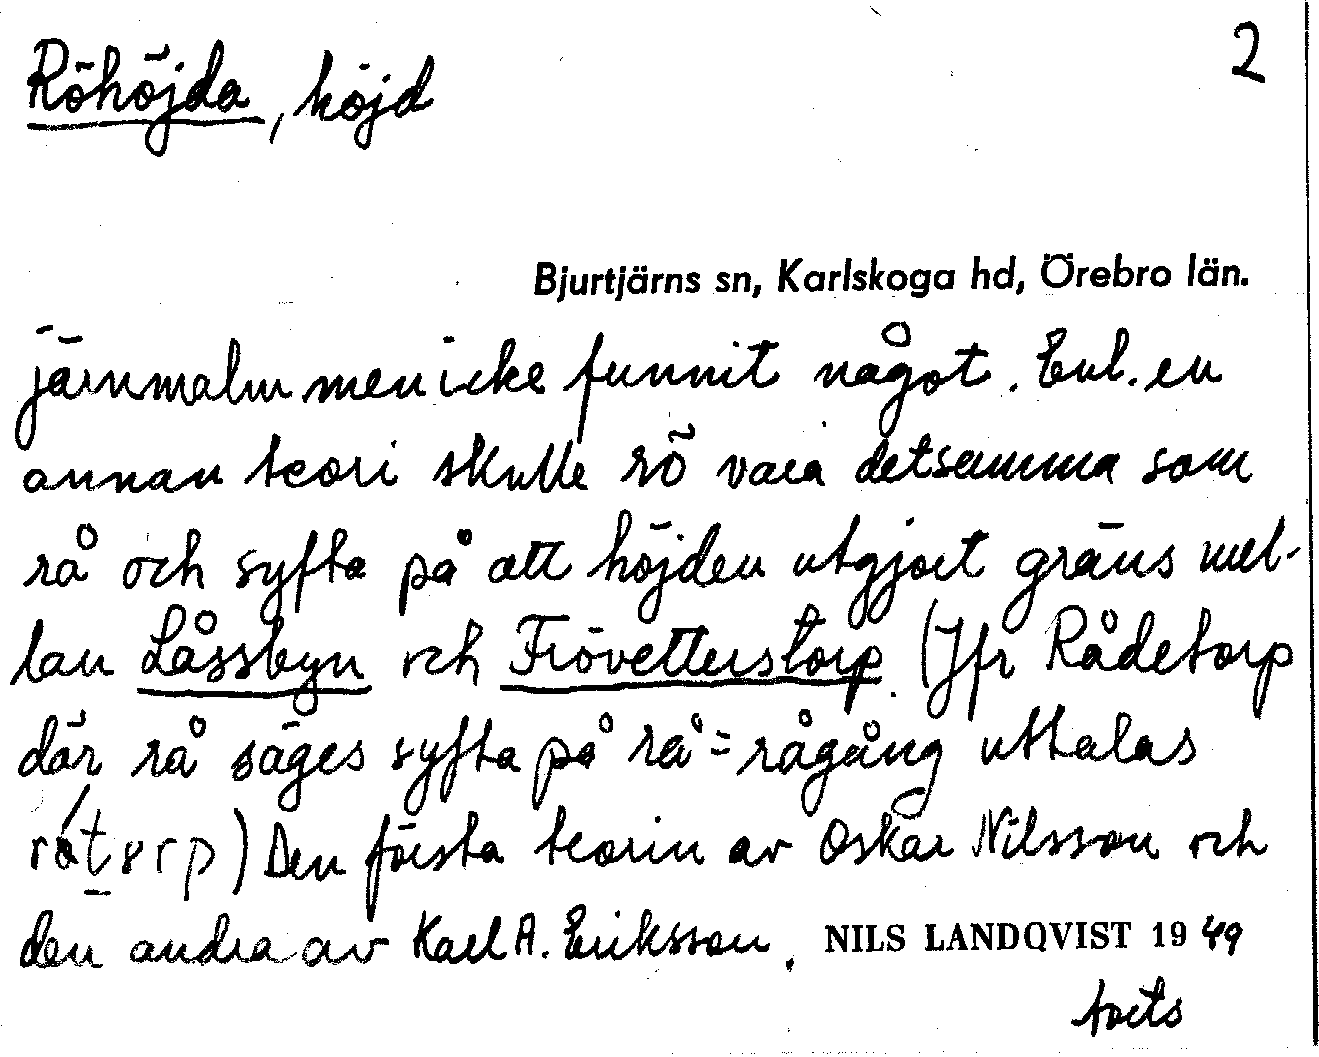 2
Röhöjda, höjd
Bjurtjärns sn, Karlskoga hd, Örebro län.
järnmalm men icke funnit något. Enl. en
annan teori skulle rö vara detsamma som
rå och syfta på att höjden utgjort gräns mel-
lan Låssbyn och Frövetterstorp. (Jfr Rådetorp
där rå säges syfta på rå = rågång uttalas
) Den första teorin av Oskar Nilsson och
den andra av Karl A. Eriksson.
NILS LANDQVIST 1949
forts